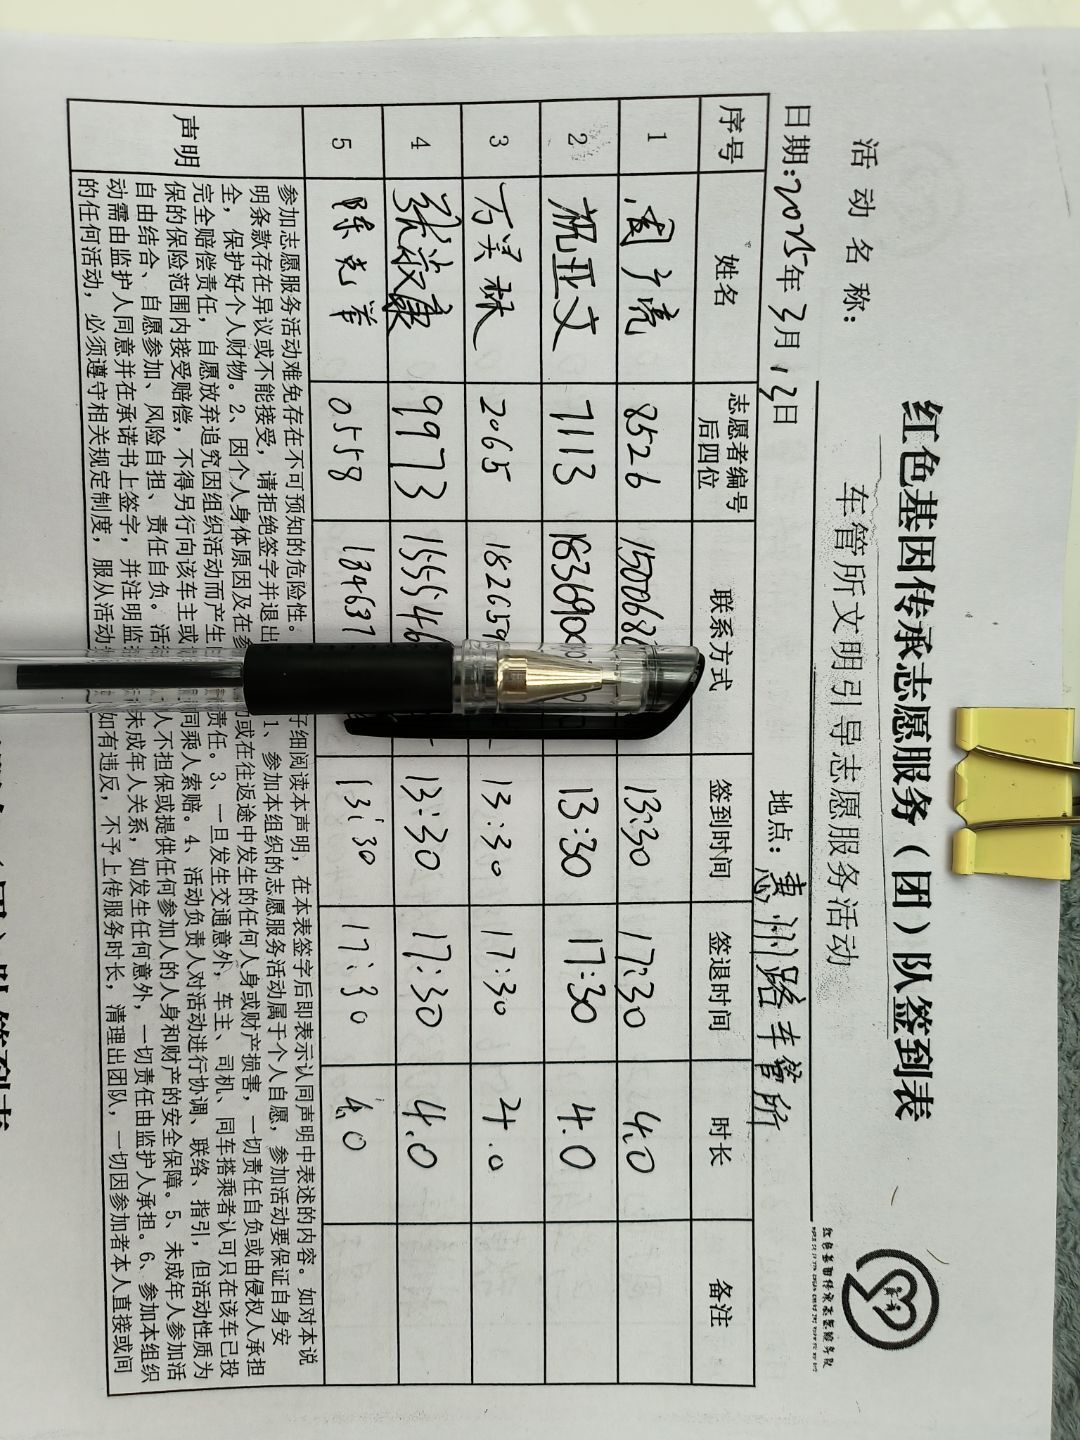 红色基因传承志愿服务（团）队签到表
活动名称： 车管所文明引导志愿服务活动
日期:2025年3月13日 地点：惠州路车管所
序号 姓名 志愿者编号后四位 联系方式 签到时间 签退时间 时长 备注
1 8526 1500682 13:30 17:30 4.0
2 祝亚文 7113 1836900 13:30 17:30 4.0
3 2065 1826659 13:30 17:30 4.0
4 9973 155546 13:30 17:30 4.0
5 陈光举 0558 134637 13:30 17:30 4.0
声明
参加志愿服务活动难免存在不可预知的危险性。 仔细阅读本声明，在本表签字后即表示认同声明中表述的内容。如对本说
明条款存在异议或不能接受，请拒绝签字并退出 1、参加本组织的志愿服务活动属于个人自愿，参加活动要保证自身安
全，保护好个人财物。2、因个人身体原因及在参 或在往返途中发生的任何人身或财产损害，一切责任自负或由侵权人承担
完全赔偿责任，自愿放弃追究因组织活动而产生 责任。3、一旦发生交通意外，车主、司机、同车搭乘者认可只在该车已投
保的保险范围内接受赔偿，不得另行向该车主或 同乘人索赔。4、活动负责人对活动进行协调、联络、指引，但活动性质为
自由结合、自愿参加、风险自担、责任自负。活 人不担保或提供任何参加人的人身和财产的安全保障。5、未成年人参加活
动需由监护人同意并在承诺书上签字，并注明监 未成年人关系，如发生任何意外，一切责任由监护人承担。6、参加本组织
的任何活动，必须遵守相关规定制度，服从活动 如有违反，不予上传服务时长，清理出团队，一切因参加者本人直接或间